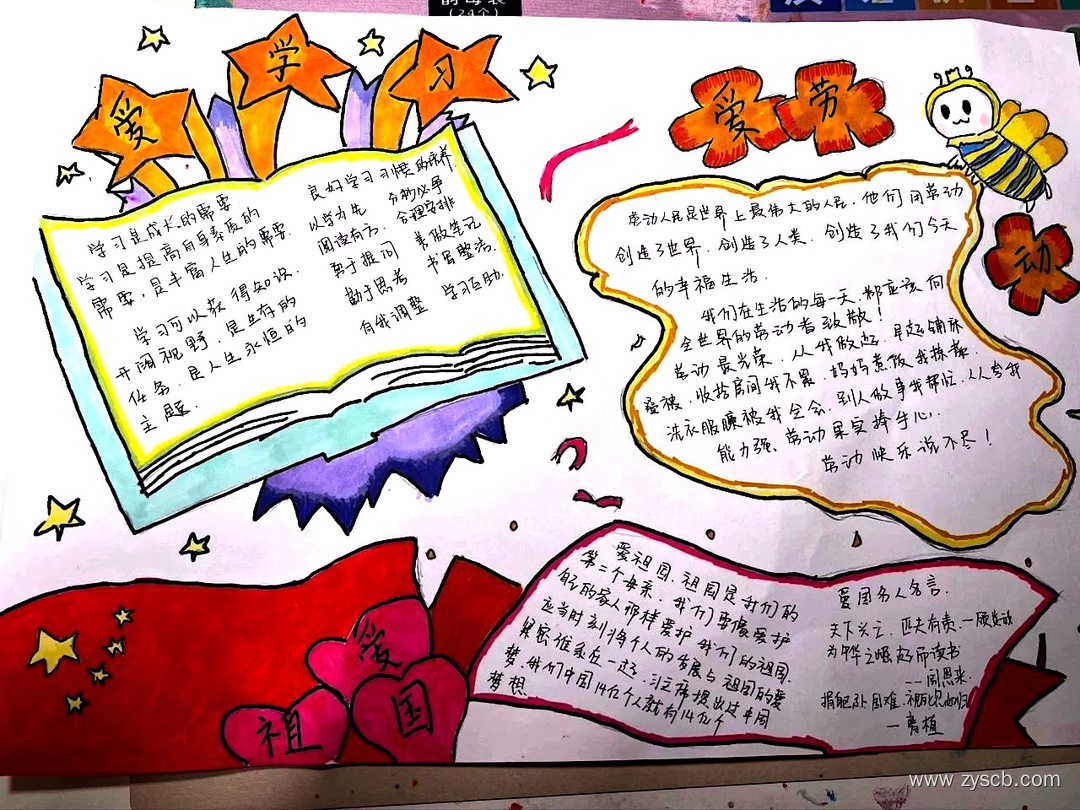 爱学习
学习是成长的需要
学习是提高自身素质的
需要，是丰富人生的需要。
学习可以获得知识、
开阔视野，是生存的
任务，是人生永恒的
主题.
良好学习习惯的培养.
以学为先 分秒必争
阅读有方、 合理安排
勇于提问 善做笔记
勤于思考 书写整洁.
自我调整 学习互助.
爱劳动
劳动人民是世界上最伟大的人民，他们用劳动
创造了世界，创造了人类，创造了我们今天
的幸福生活.
我们在生活的每一天都应该向
全世界的劳动者致敬！
劳动最光荣，从我做起，早起铺床
叠被，收拾房间我不累，妈妈煮饭我择菜，
洗衣服 被我全会，别人做事我帮忙，人人夸我
能力强、劳动果实捧手心，
劳动快乐说不尽！
爱祖国
爱祖国，祖国是我们的
第二个母亲，我们要像爱护
自己的家人那样爱护我们的祖国.
应当时刻将个人的发展与祖国的
紧密联系在一起，习主席提出过中国
梦，我们中国14亿个人就有14亿个
梦想
爱国名人名言.
天下兴亡，匹夫有责.
为中华之崛起而读书
--周恩来.
捐躯赴国难，视死忽如归
一曹植
www.zyscb.com